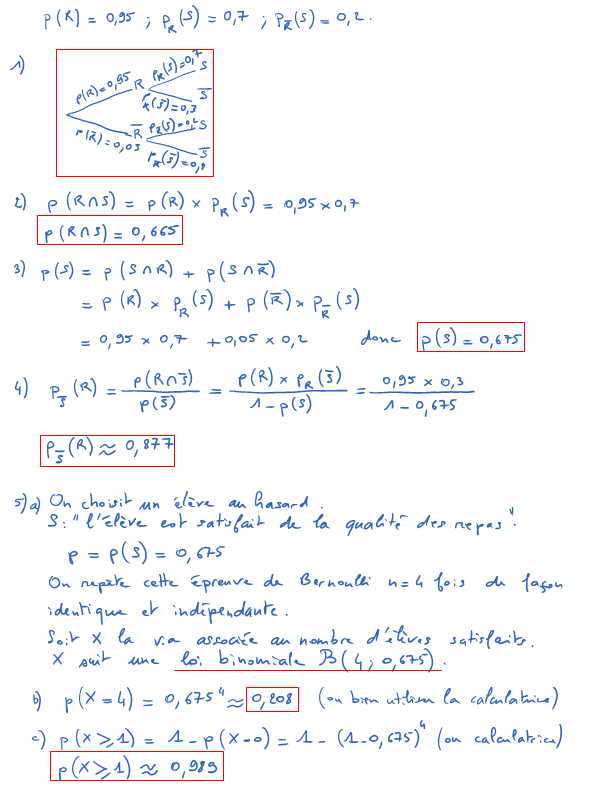 p(R) = 0,95 ; p_R(S) = 0,7 ; p_R̅(S) = 0,2.
1)
p(R)=0,95 R p_R(S)=0,7 S
p_R(S̅)=0,3 S̅
p(R̅)=0,05 R̅ p_R̅(S)=0,2 S
p_R̅(S̅)=0,8 S̅
2) p(R∩S) = p(R) × p_R(S) = 0,95 × 0,7
p(R∩S) = 0,665
3) p(S) = p(S∩R) + p(S∩R̅)
= p(R) × p_R(S) + p(R̅) × p_R̅(S)
= 0,95 × 0,7 + 0,05 × 0,2 donc p(S) = 0,675
4) p_S̅(R) = p(R∩S̅) / p(S̅) = p(R) × p_R(S̅) / 1 - p(S) = 0,95 × 0,3 / 1 - 0,675
p_S̅(R) ≈ 0,877
5) a) On choisit un élève au hasard.
S : "l'élève est satisfait de la qualité des repas".
p = p(S) = 0,675
On repète cette épreuve de Bernoulli n = 4 fois de façon
identique et indépendante.
Soit X la v.a associée au nombre d'élèves satisfaits.
X suit une loi binomiale B(4 ; 0,675).
b) p(X = 4) = 0,675⁴ ≈ 0,208 (ou bien utiliser la calculatrice)
c) p(X ⩾ 1) = 1 - p(X=0) = 1 - (1-0,675)⁴ (ou calculatrice)
p(X ⩾ 1) ≈ 0,989